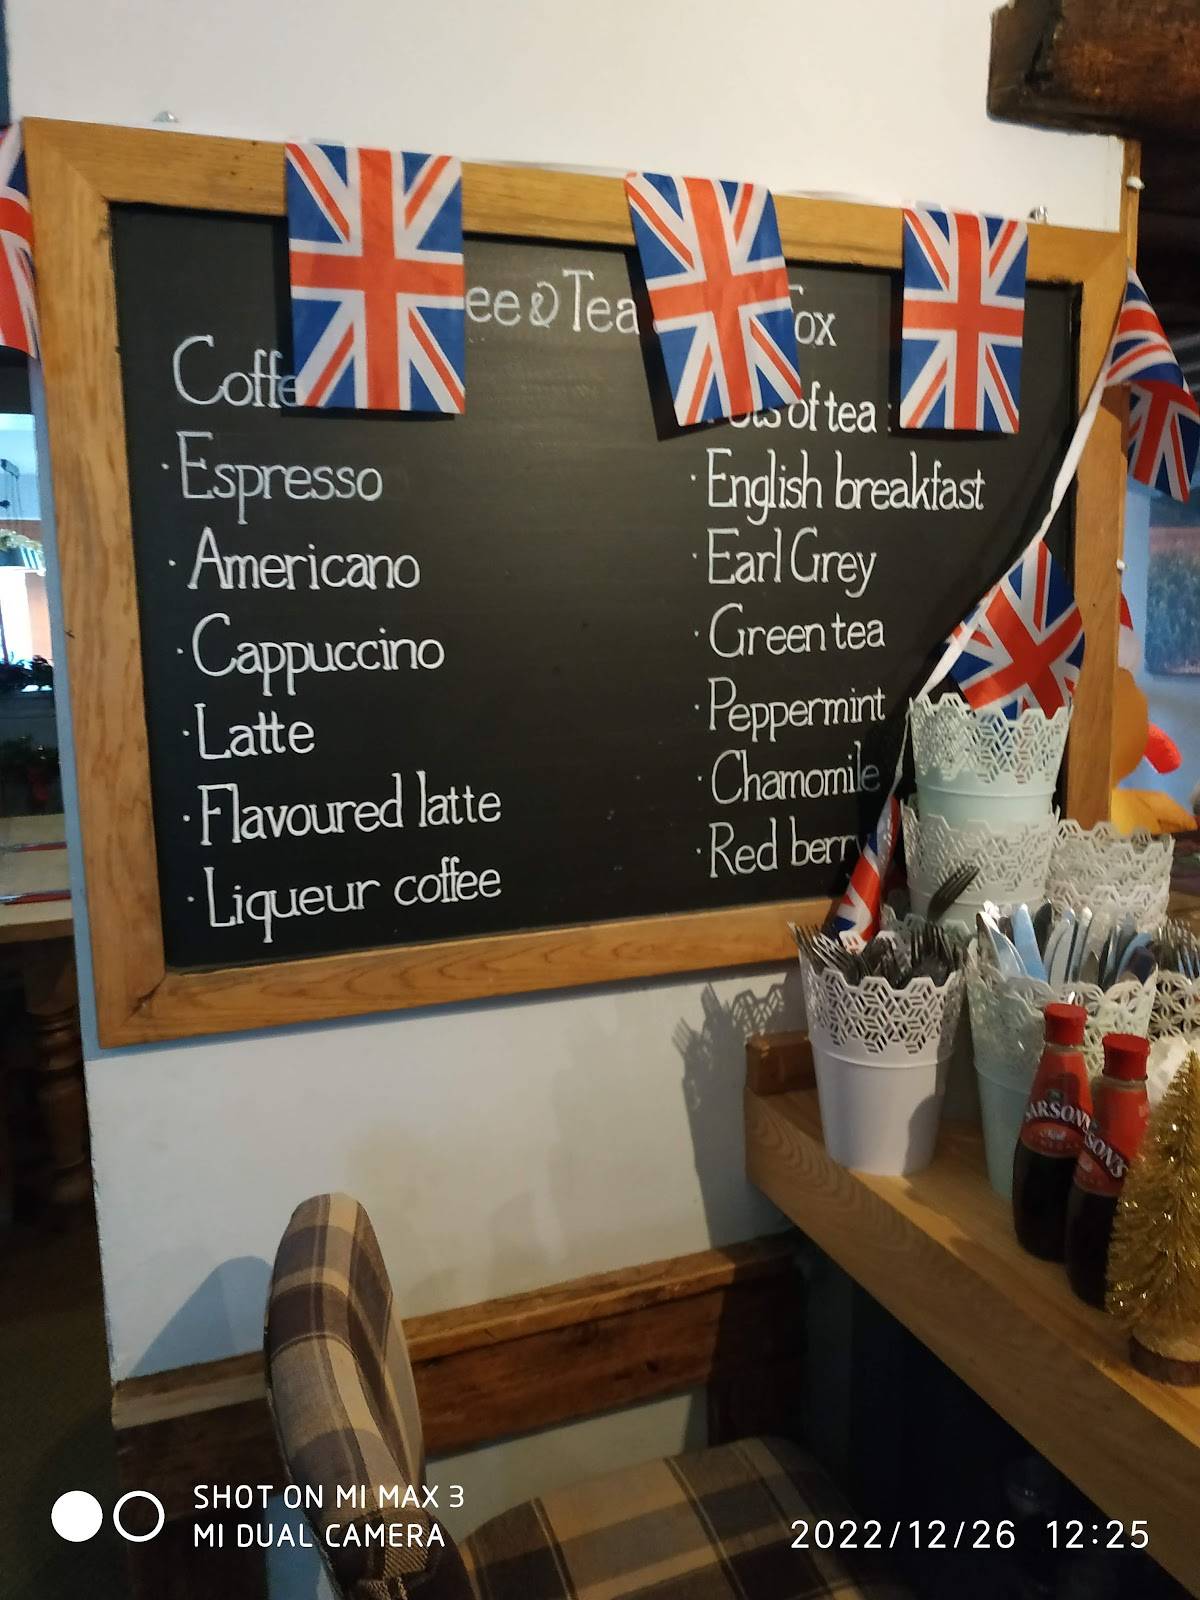 ee & Tea ox
Coffe
· Espresso
· Americano
· Cappuccino
· Latte
· Flavoured latte
· Liqueur coffee
ots of tea :
· English breakfast
· Earl Grey
· Green tea
· Peppermint
· Chamomile
· Red berry
SARSON'S
SON'S
SHOT ON MI MAX 3
MI DUAL CAMERA
2022/12/26 12:25